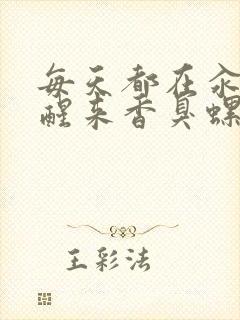 每天都在汆
醒来香臭螺
王彩法